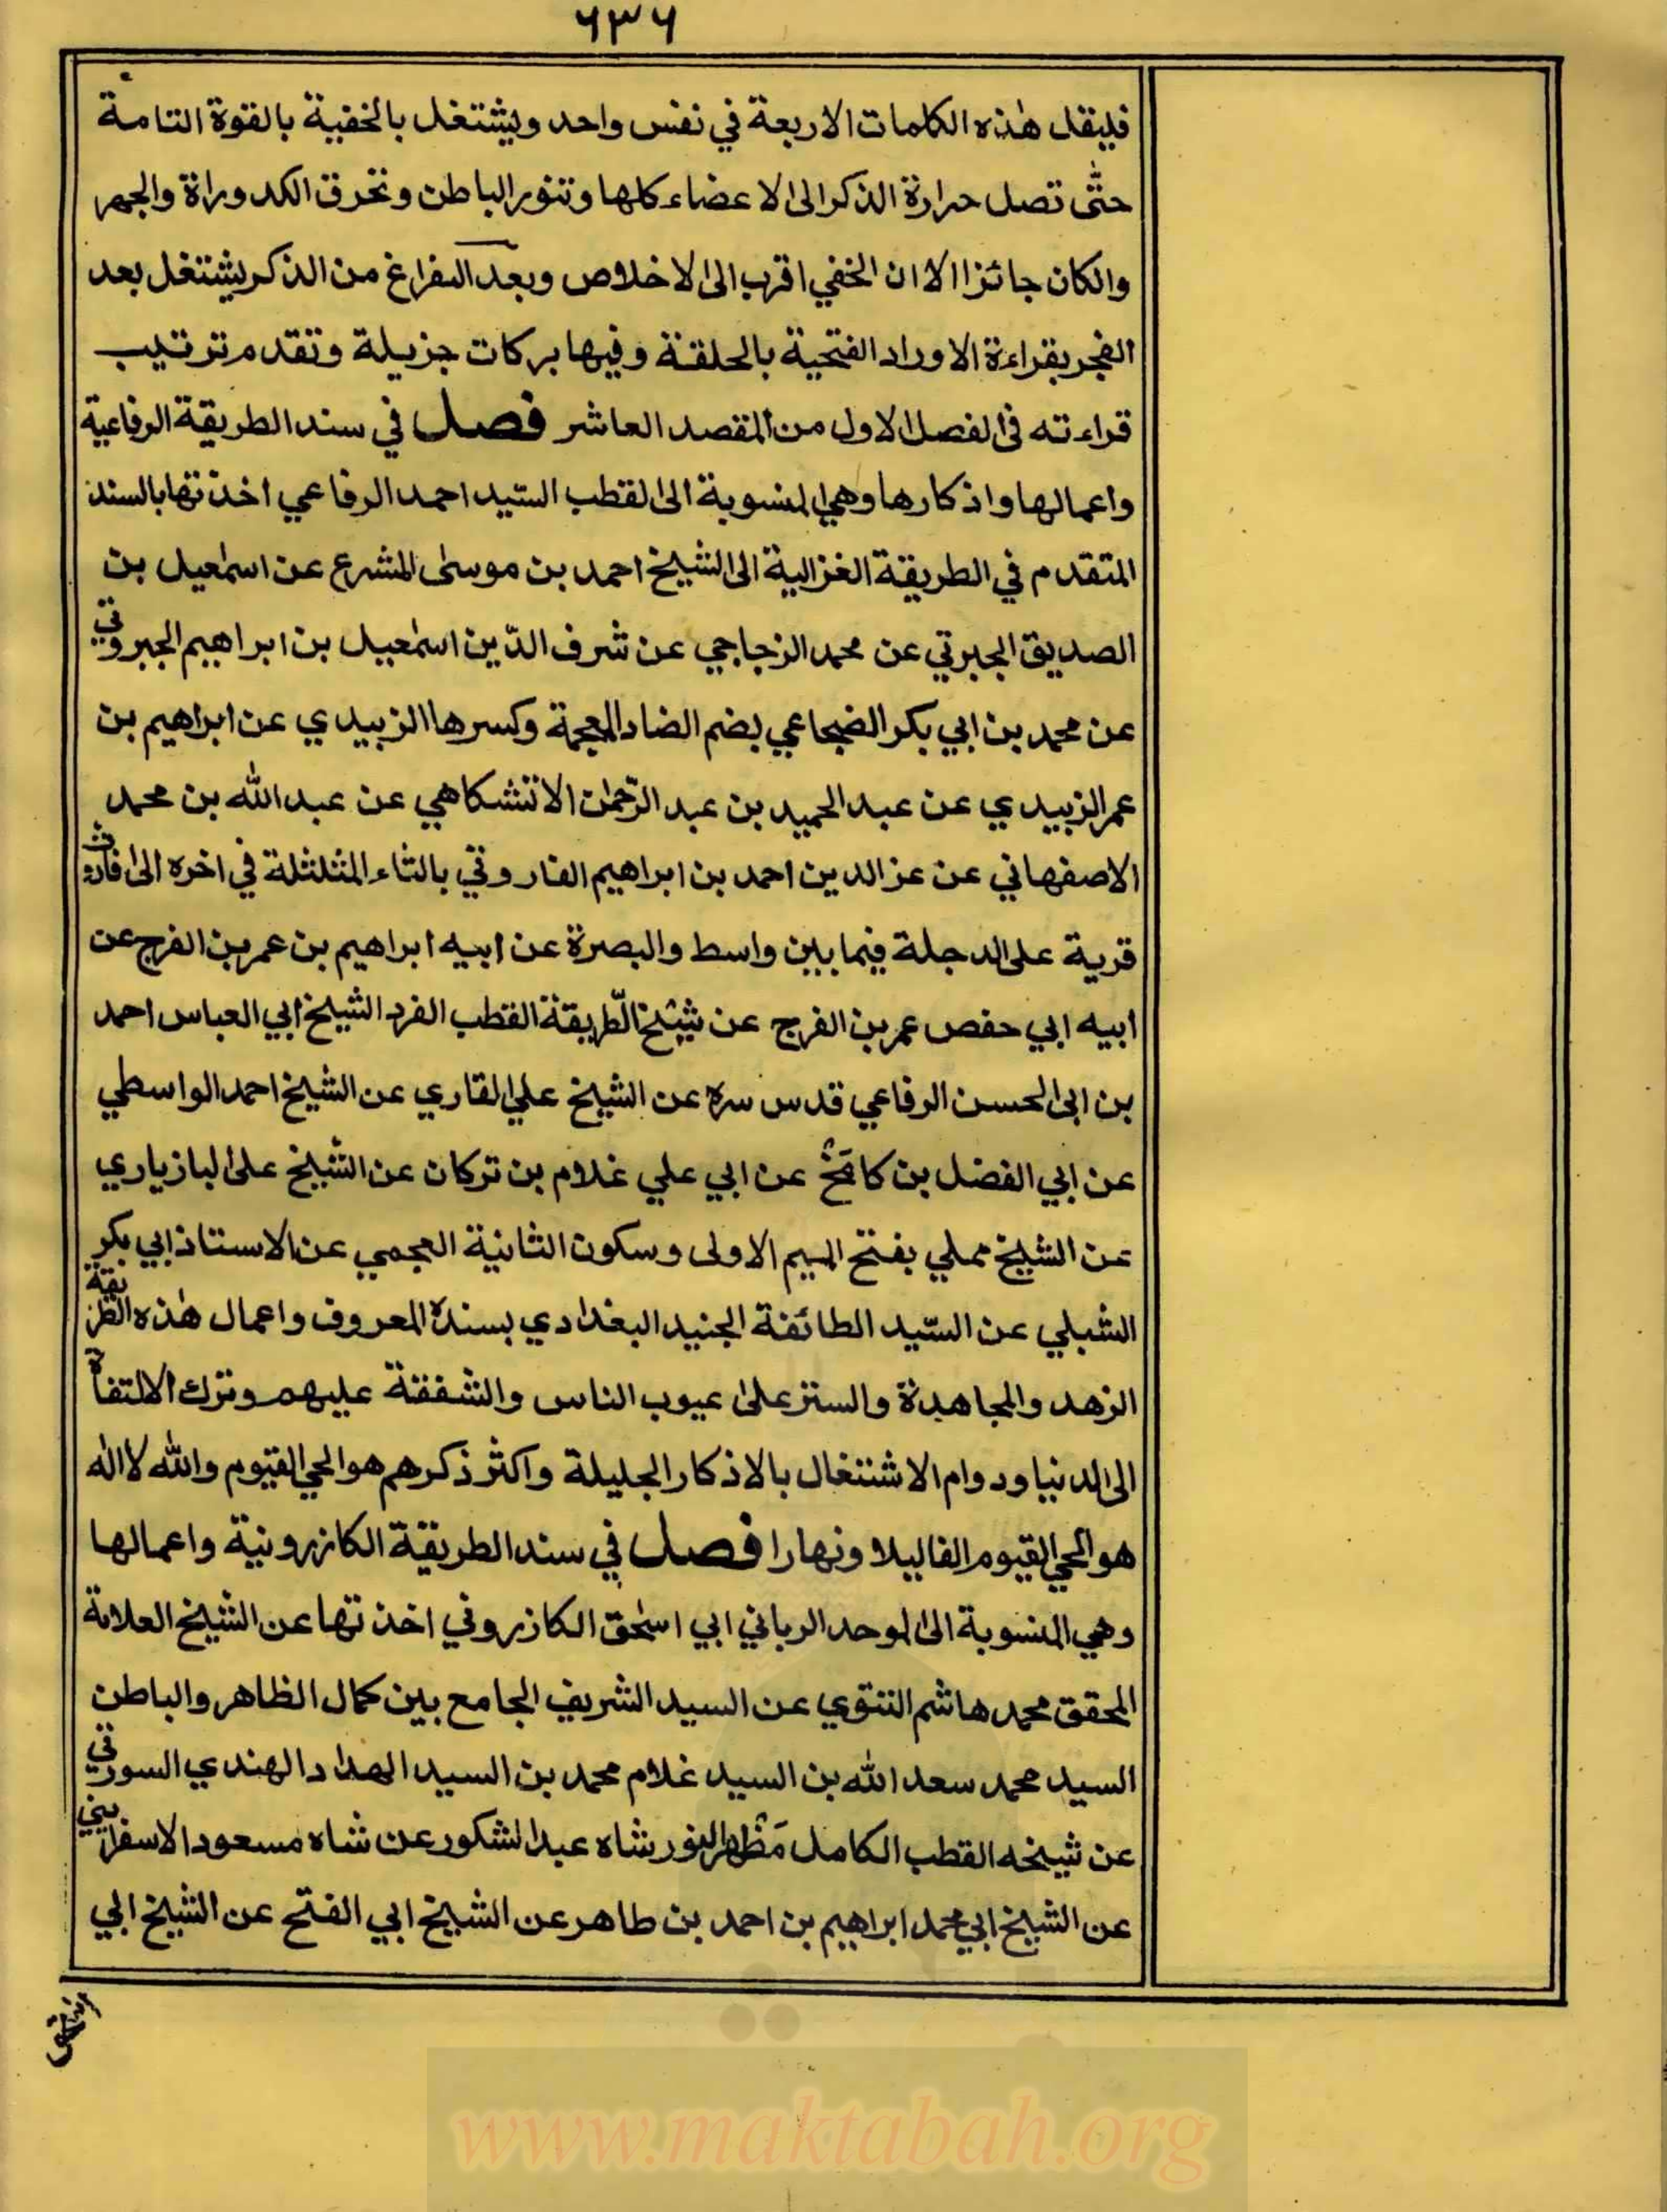 ٦٣٦
فليقل هٰذه الكلمات الاربعة في نفس واحد ويشتغل بالخفية بالقوة التامة
حتّٰى تصل حرارة الذكر الى الاعضاء كلها وتنور الباطن وتحرق الكدوراة والجهر
والكان جائزا الا ان الخفي اقرب الى لاخلاص وبعد الفراغ من الذكر يشتغل بعد
الفجر بقراءة الاوراد الفتحية بالحلقة وفيها بركات جزيلة وتقدم ترتيب
قراءته فى الفصل الاول من المقصد العاشر فصل في سند الطريقة الرفاعية
واعمالها واذكارها وهي المنسوبة الى القطب السّيد احمد الرفاعي اخذتها بالسند
المتقدم في الطريقة الغزالية الى الشيخ احمد بن موسىٰ المشرع عن اسمٰعيل بن
الصديق الجبرتي عن محمد الزجاجي عن شرف الدّين اسمٰعيل بن ابراهيم الجبروتي
عن محمد بن ابي بكر الضجاعي بضم الضاد المعجمة وكسرها الزبيدي عن ابراهيم بن
عمر الزبيدي عن عبد الحميد بن عبد الرّحمٰن الانتشكاهي عن عبد الله بن محمد
الاصفهاني عن عز الدين احمد بن ابراهيم الفاروثي بالثاء المثلثلة في اخره الى فاروث
قرية على الدجلة فيما بين واسط والبصرة عن ابيه ابراهيم بن عمر بن الفرج عن
ابيه ابي حفص عمر بن الفرج عن شيخ الطّريقة القطب الفرد الشيخ ابي العباس احمد
بن ابى الحسن الرفاعي قدس سره عن الشيخ علي القاري عن الشيخ احمد الواسطي
عن ابي الفضل بن كامَخْ عن ابي علي غلام بن تركان عن الشيخ على البازياري
عن الشيخ مملي بفتح الميم الاولى وسكون الثانية العجمي عن الاستاذ ابي بكر
الشبلي عن السّيد الطائفة الجنيد البغدادي بسنده المعروف واعمال هٰذه الطريقة
الزهد والمجاهدة والستر علىٰ عيوب الناس والشفقة عليهم وترك الالتفاة
الى الدنيا ودوام الاشتغال بالاذكار الجليلة واكثر ذكرهم هو الحي القيوم والله لا اله
هو الحي القيوم الفا ليلا ونهارا فصل في سند الطريقة الكازرونية واعمالها
وهي المنسوبة الى الموحد الرباني ابي اسحٰق الكازروني اخذتها عن الشيخ العلامة
المحقق محمد هاشم التتوي عن السيد الشريف الجامع بين كمال الظاهر والباطن
السيد محمد سعد الله بن السيد غلام محمد بن السيد الهداد الهندي السورتي
عن شيخه القطب الكامل مَظْهر النور شاه عبد الشكور عن شاه مسعود الاسفرايني
عن الشيخ ابي محمد ابراهيم بن احمد بن طاهر عن الشيخ ابي الفتح عن الشيخ ابي
www.maktabah.org